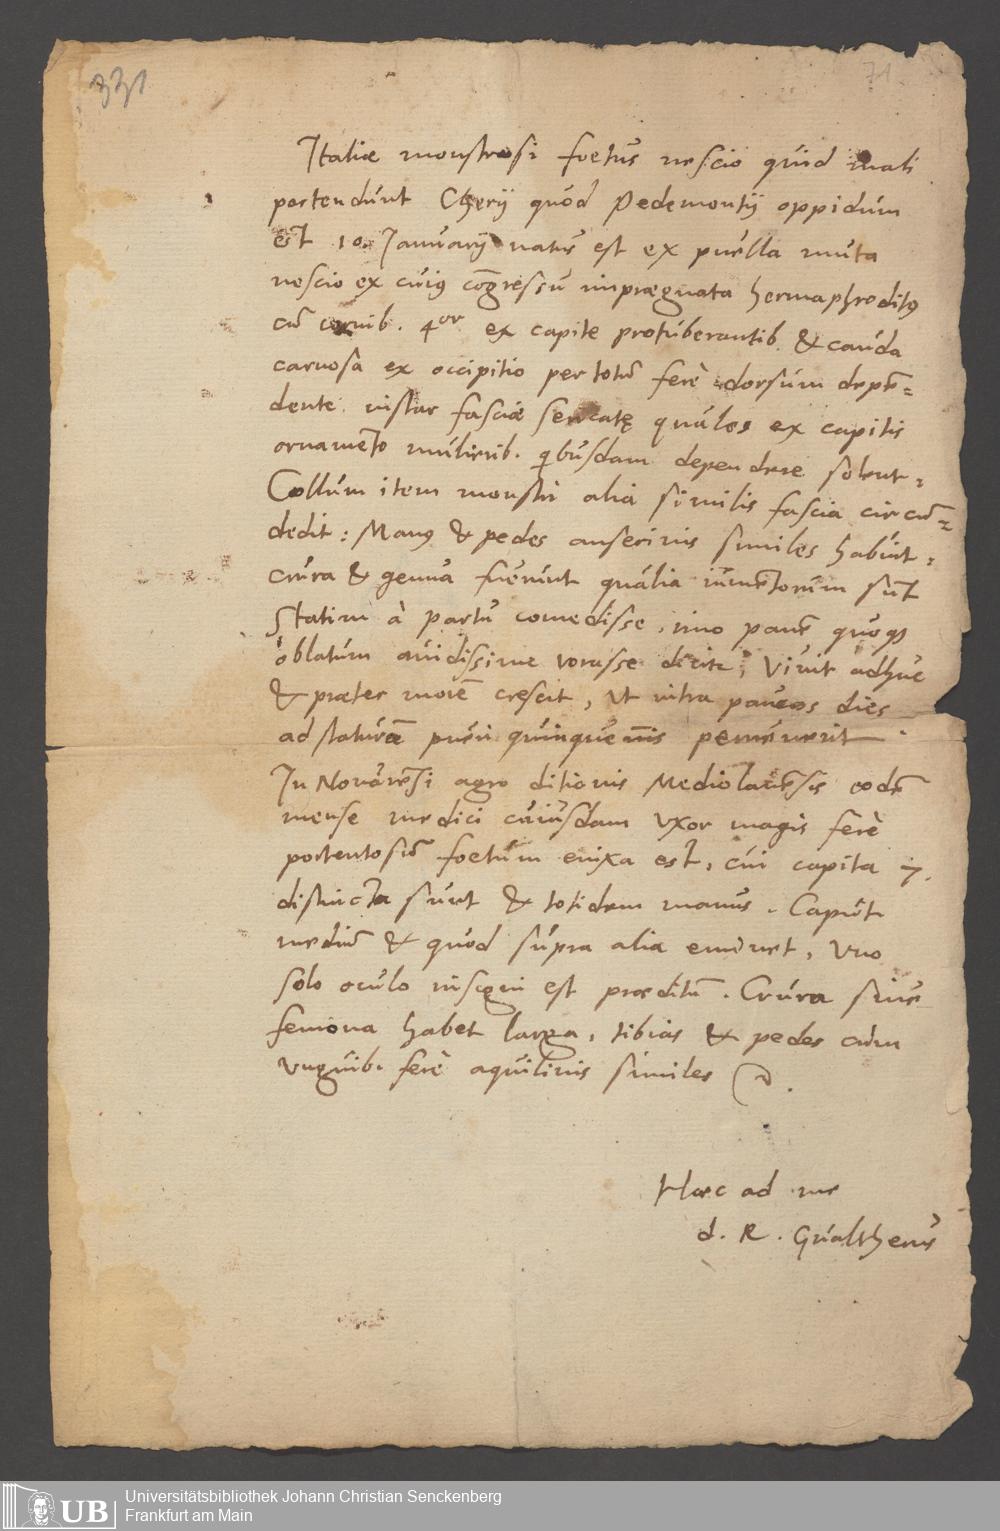 331
71
Italiæ monstrosi foetus nescio quid mali
portendunt Cherij quod Pedemontij oppidum
est 10 Januarij natus est ex puella muta
nescio ex cuius cōgressu imprægnata hermaphroditus
cū cornib. 4or ex capite protuberantib. & cauda
carnosa ex occipitio per totū ferè dorsum depē=
dente instar fasciæ sericatę quales ex capitis
ornamēto mulierib. qbusdam dependere solent.
Collum item monstri alia similis fascia circū=
dedit: Manus & pedes anserinis similes habuit.
crura & genua fuerunt qualia iumētorum sunt
Statim à partu comedisse, imo panē quoqȝ
oblatum auidissime vorasse dicitr, Viuit adhuc
& præter morē crescit, ut intra paucos dies
ad staturā pueri quinquennis peruenerit.
In Novarēsi agro ditionis Mediolanēsis eodē
mense medici cuiusdam vxor magis ferè
portentosū foetum enixa est, cui capita 7.
distincta sunt & totidem manus. Caput
mediū & quod supra alia eminet, vno
solo oculo insigni est præditū. Crura siue
femora habet larga, tibias & pedes cum
vnguib. ferè aquilinis similes
Hæc ad me
d. R. Gualtherus
UB
Universitätsbibliothek Johann Christian Senckenberg
Frankfurt am Main